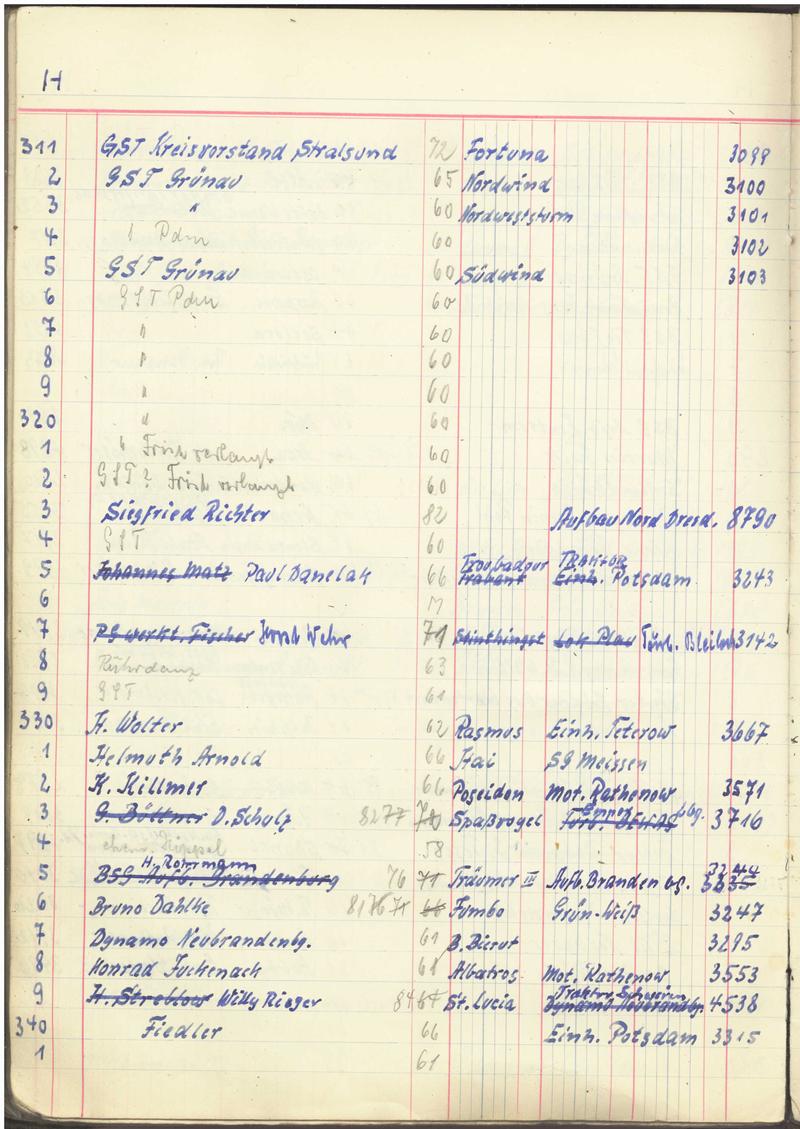 H
311 GST Kreisvorstand Stralsund 72 Fortuna 3099
2 GST Grünau 65 Nordwind 3100
3 " 60 Nordweststurm 3101
4 " Pdm 60 3102
5 GST Grünau 60 Südwind 3103
6 GST Pdm 60
7 " 60
8 " 60
9 " 60
320 " 60
1 " Frist verlangt 60
2 GST ? Frist verlangt 60
3 Siegfried Richter 82 Aufbau Nord Dresd. 8790
4 GST 60
Troubadour TRAKTOR
5 Johannes Matz Paul Danelak 66 Trabant Einh. Potsdam 3243
6
7 PG werkt. Fischer Horst Wehr 71 Lok Plau Turb. 3142
8 63
9 GST 61
330 H. Wolter 62 Rasmus Einh. Teterow 3667
1 Helmuth Arnold 66 Hai SG Meissen
2 K. Killmer 66 Poseidon Mot. Rathenow 3571
3 G. Büttner D. Schulz 8277 Spaßvogel 3716
4 ehem. 58
H. Rohrmann
5 BSG Aufb. Brandenburg 76 71 Träumer III Aufb. Brandenbg.
6 Bruno Dahlke Jumbo Grün-Weiß 3247
7 Dynamo Neubrandenbg. 61 B. Bierut 3295
8 Konrad Juckenack 61 Albatros Mot. Rathenow 3553
Traktor Schwerin
9 H. Streblow Willy Rieger St. Lucia Dynamo Neubrandbg. 4538
340 Fiedler 66 Einh. Potsdam 3315
1 61